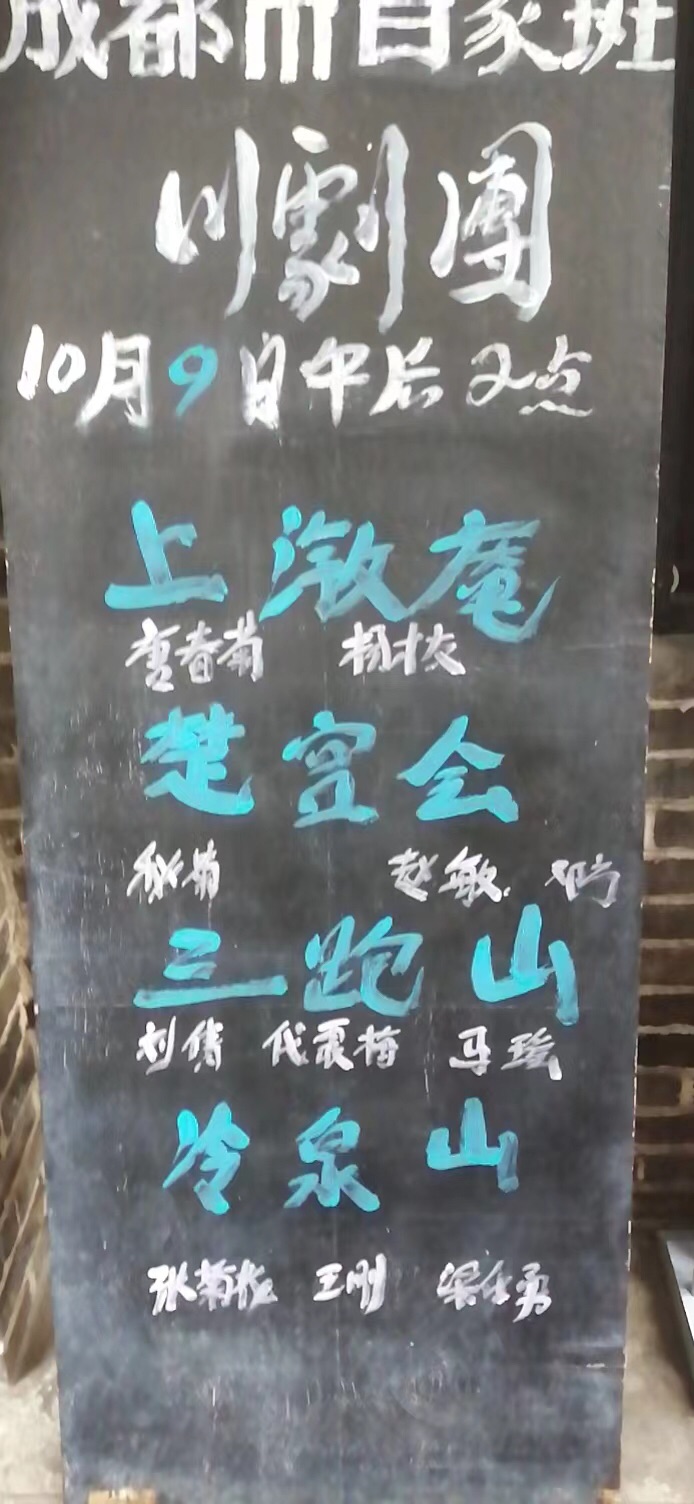 成都市百家班
川劇團
10月9日午后2点
上激庵
童春菊 杨才友
楚宫会
秋菊 赵敏
三跑山
刘倩 代震梅 马骏
冷泉山
张菊花 王刚 梁永勇